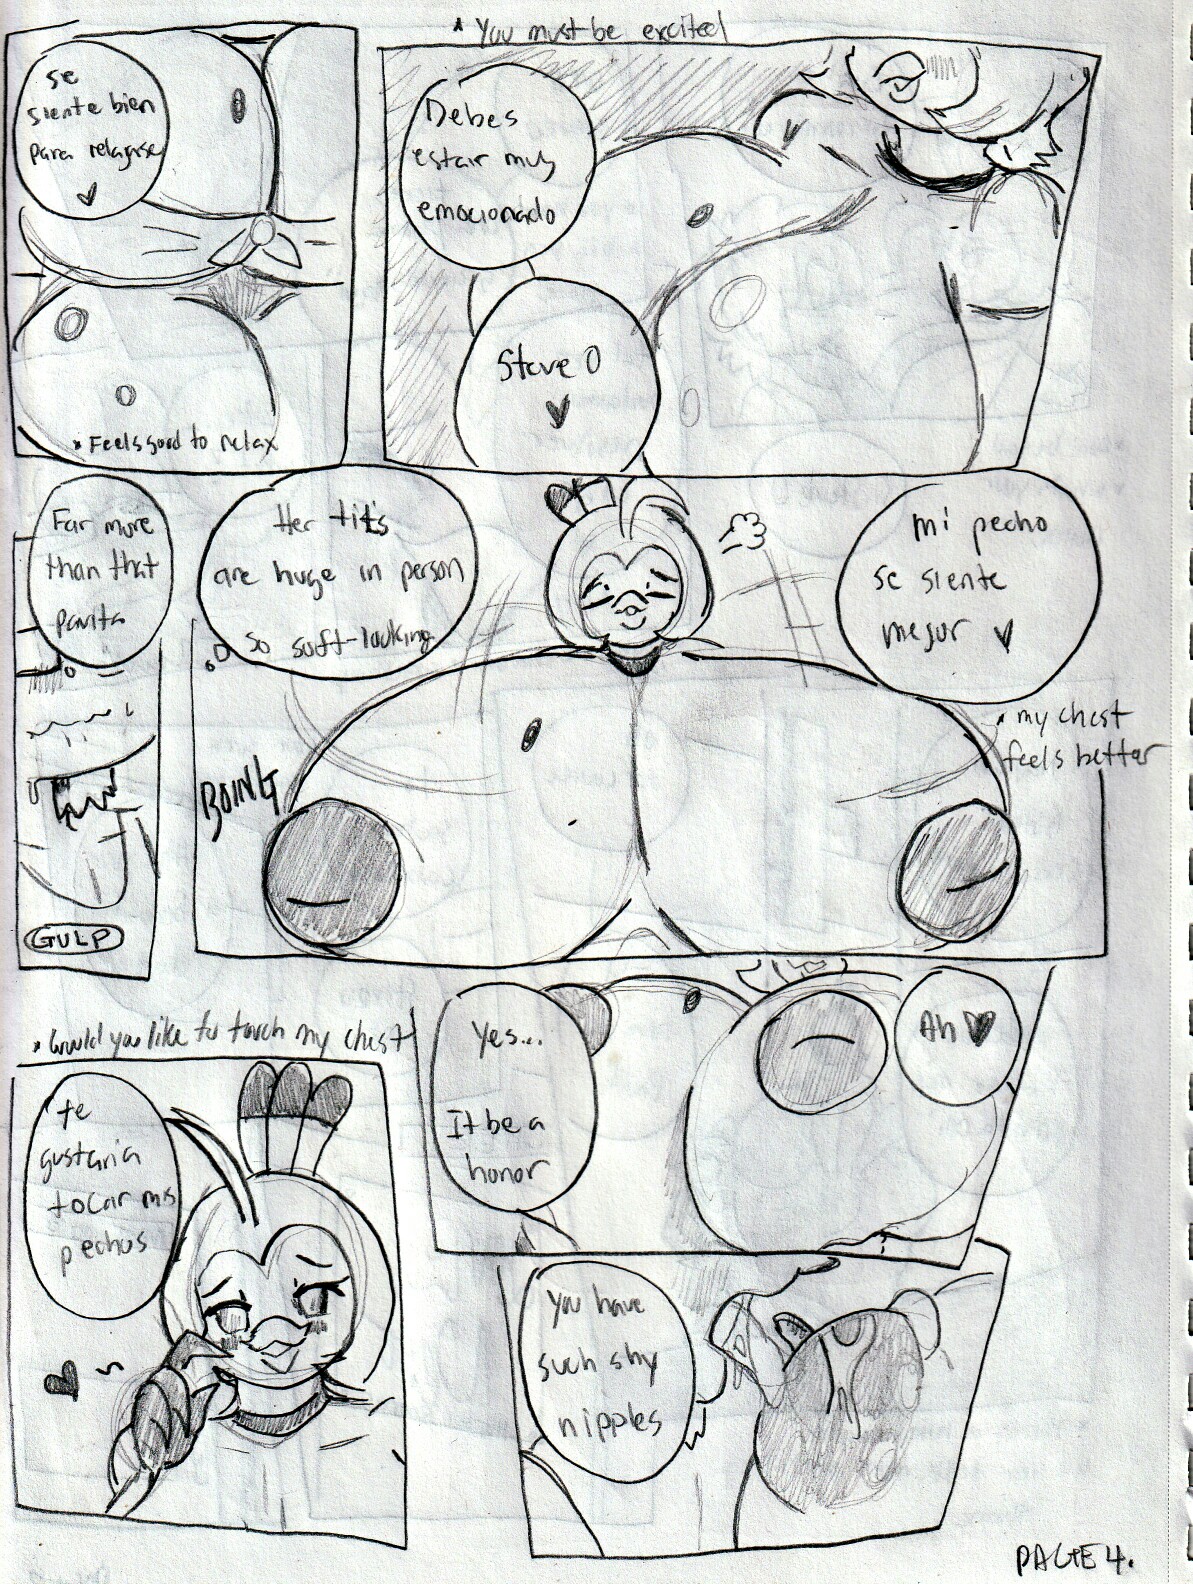 * You must be excited
se
siente bien
para relagarse
* Feels good to relax
Debes
estair muy
emocionado
Steve O
Far more
than that
pavita
GULP
Her tit's
are huge in person
so soft-looking
mi pecho
se siente
mejor
* my chest
feels better
BOING
* Would you like to touch my chest
te
gustaria
tocar mis
pechos
Yes...
It be a
honor
Ah
You have
such shy
nipples
PAGE 4.